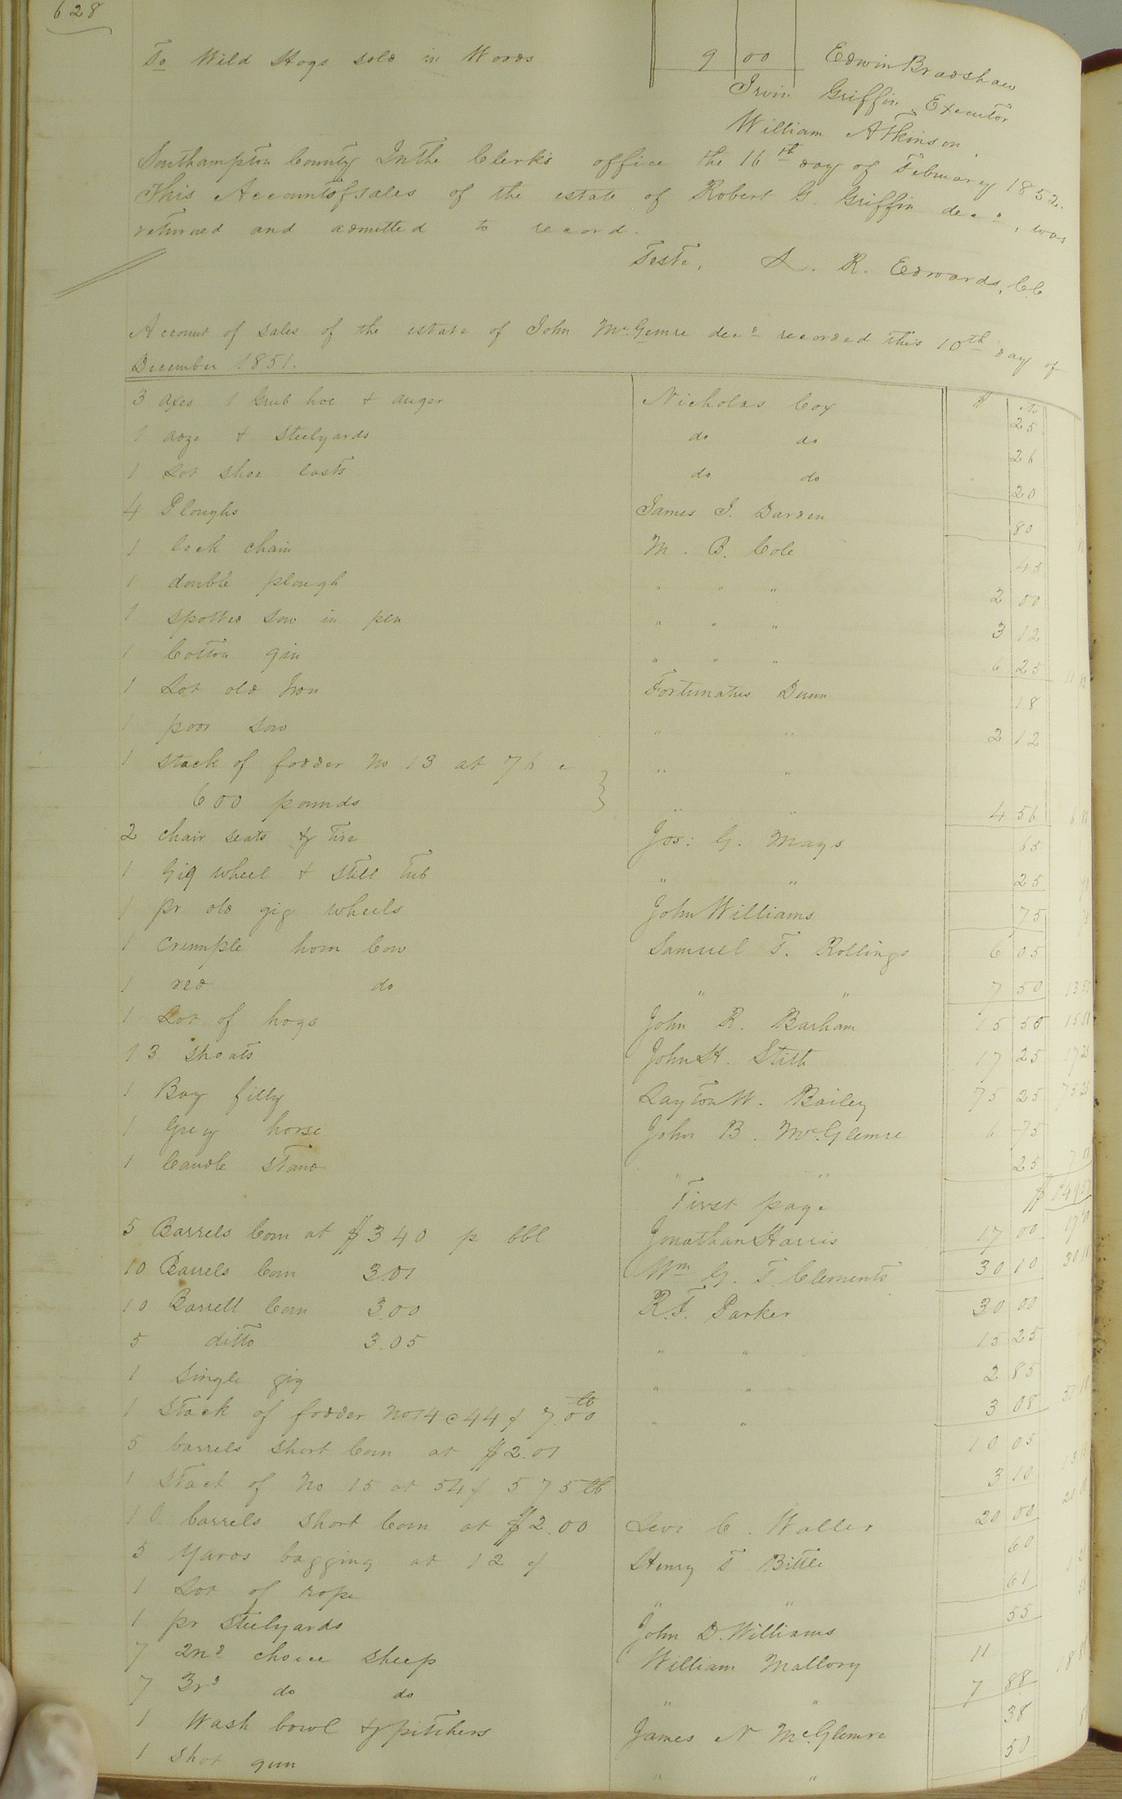 628
To Wild Hogs sold in Woods 9 00 Edwin Bradshaw
Irvin Griffin Executor
William Atkinson
Southampton County In the Clerk's office the 16th day of February 1852.
This Account of sales of the estate of Robert G. Griffin decd, was
returned and admitted to record.
Teste, L. R. Edwards, CC
Account of sales of the estate of John McGlemre decd recorded this 10th day of
December 1851.
3 axes 1 Grub hoe & auger Nicholas Cox 25
1 adze & Steelyards do do 26
1 Lot shoe lasts do do 20
4 Ploughs James J. Darden 80
1 lock chain M. B. Cole 45
1 double plough " " " 2 00
1 spotted sow in pen " " " 3 12
1 Cotton gin " " " 6 25
1 Lot old Iron Fortunatus Dunn 18
1 poor sow " " 2 12
1 stack of fodder No 13 at 76 c " "
600 pounds " " 4 56
2 chair seats & tire Jos: G. Mays 65
1 Gig wheel & still tub " " 25
1 pr old gig wheels John Williams 75
1 crumple horn Cow Samuel T. Rollings 6 05
1 red do " " 7 50
1 Lot of hogs John R. Barham 15 50
13 Shoats John H. Stith 17 25
1 Bay filly Layton W. Bailey 75 25
1 Grey horse John B. McGlemre 6 75
1 Candle Stand " " 25
First page $
5 Barrels Corn at $3 40 p bbl Jonathan Harris 17 00
10 Barrels Corn 3.01 Wm G. T. Clements 30 10
10 Barrell Corn 3.00 R. F. Parker 30 00
5 ditto 3.05 " " 15 25
1 Single gig " " 2 85
1 Stack of fodder No 14 @ 44 700 lb " " 3 08
5 barrels short Corn at $2.01 10 05
1 Stack of No 15 at 54 575 lb 3 10
10 barrels short Corn at $2.00 Levi C. Waller 20 00
5 Yards bagging at 12 Henry T Bittle 60
1 Lot of rope " " 61
1 pr Steelyards John D. Williams 55
7 2nd choice sheep William Mallory 11
7 3rd do do " " 7 88
1 Wash bowl & pitchers James N McGlemre 38
1 shot gun " " 50